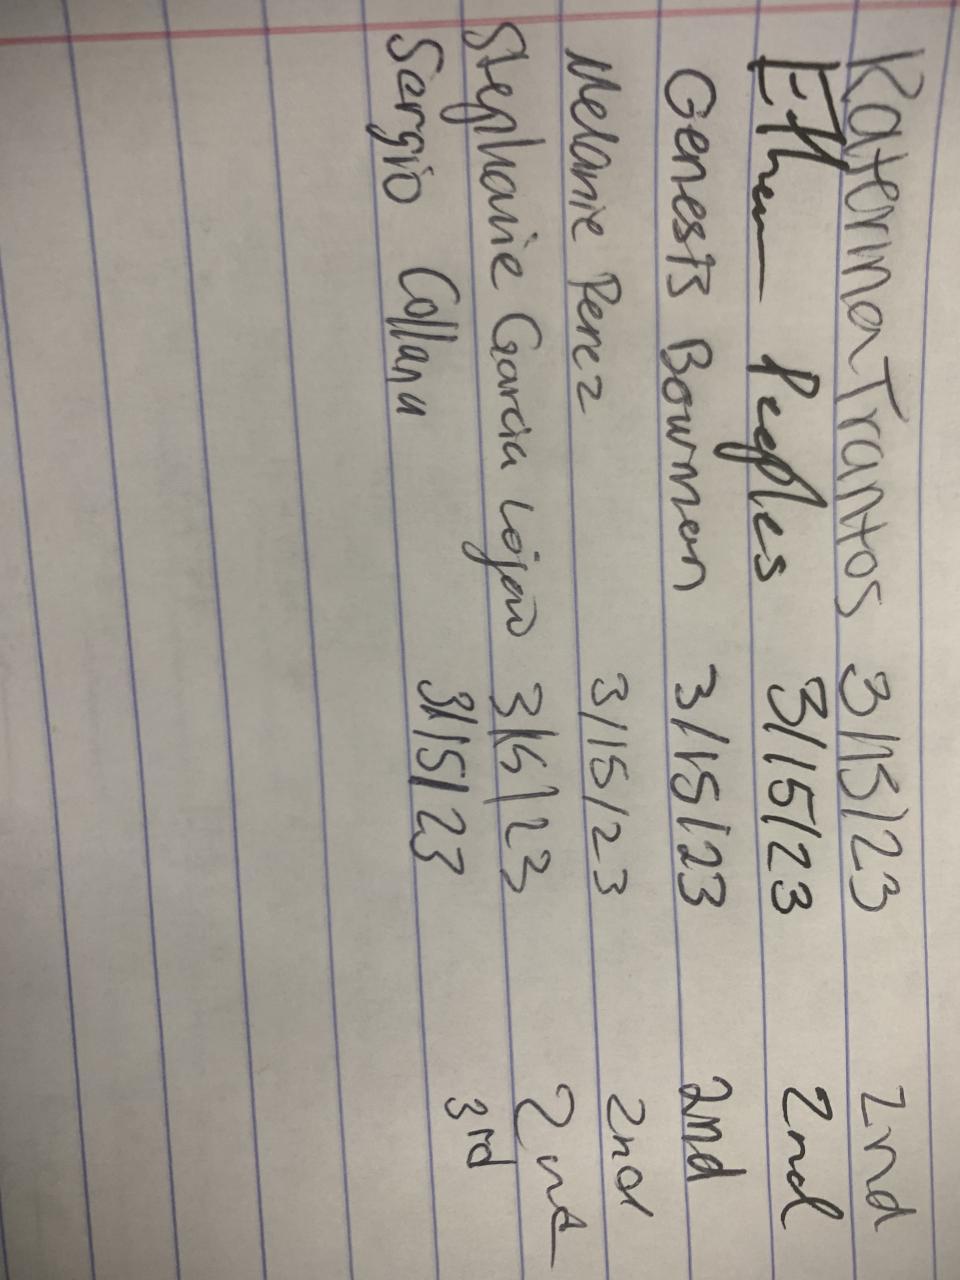 Katerina Trantos 3/15/23 2nd
Ethan Peeples 3/15/23 2nd
Genesis Bowman 3/15/23 2nd
Melanie Perez 3/15/23 2nd
Stephanie Garcia 3/15/23 2nd
Sergio 3/15/23 3rd